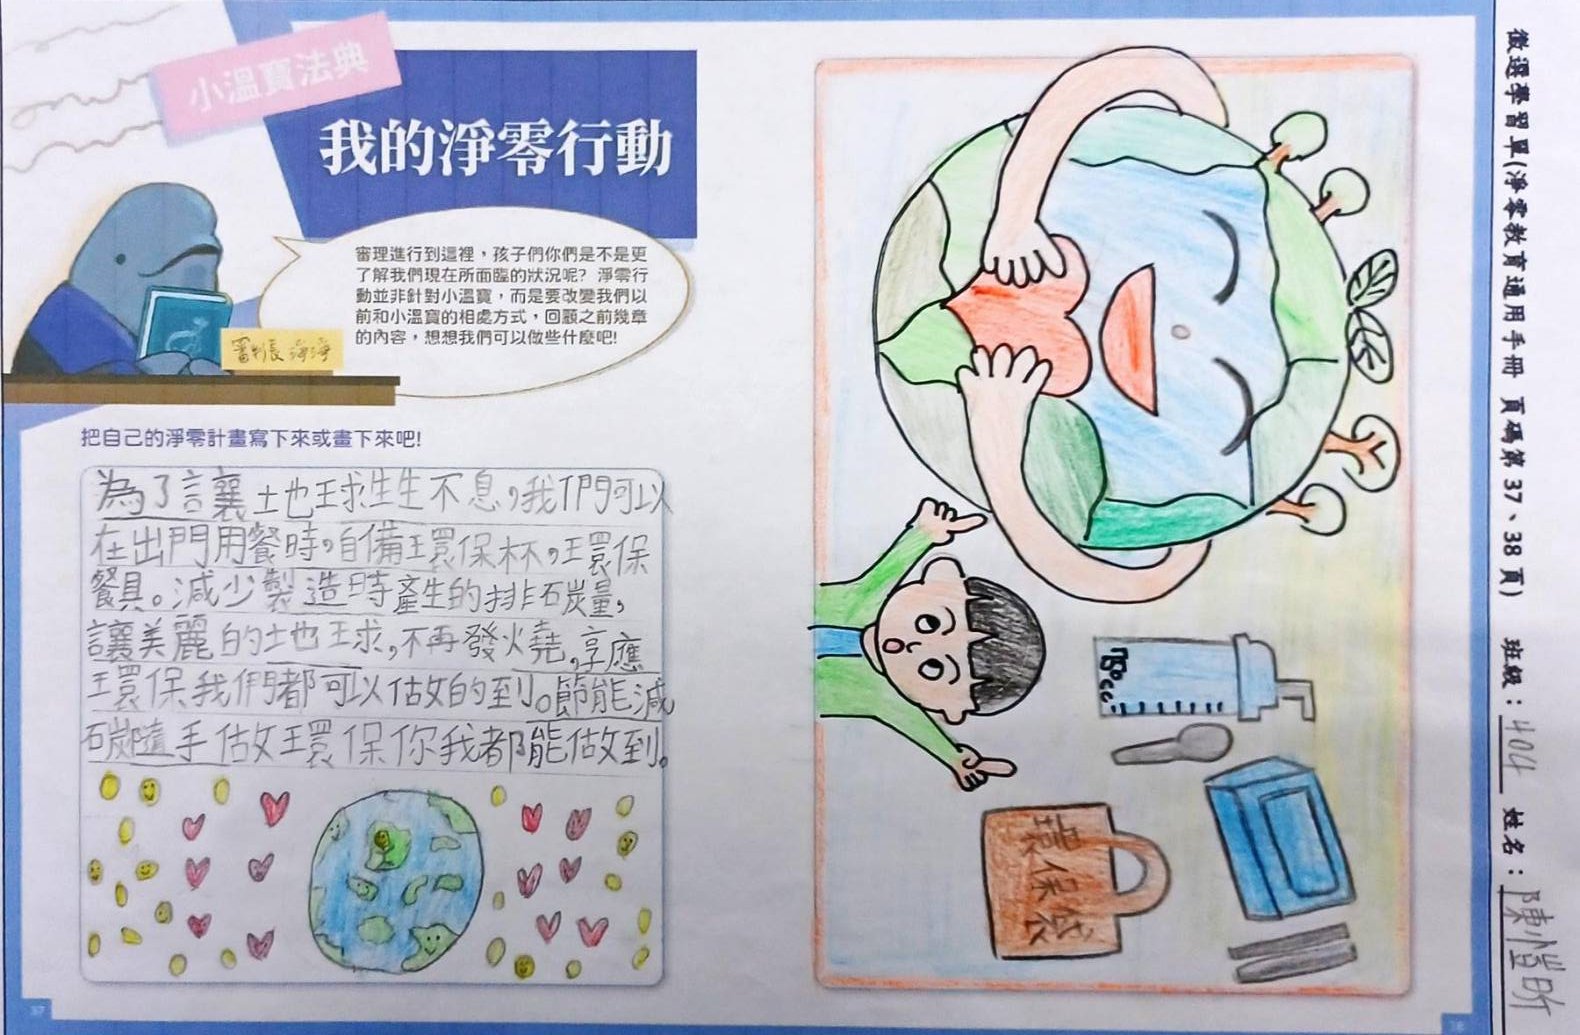 小溫寶法典
我的淨零行動
審理進行到這裡，孩子們你們是不是更
了解我們現在所面臨的狀況呢？淨零行
動並非針對小溫寶，而是要改變我們以
前和小溫寶的相處方式，回顧之前幾章
的內容，想想我們可以做些什麼吧！
審判長 淨淨
把自己的淨零計畫寫下來或畫下來吧！
為了讓地球生生不息，我們可以
在出門用餐時，自備環保杯，環保
餐具。減少製造時產生的排碳量，
讓美麗的地球，不再發火燒，享應
環保我們都可以做的到。節能減
碳隨手做環保你我都能做到。
37
700cc
環保袋
徵選學習單(淨零教育通用手冊 頁碼第37、38頁) 班級：404 姓名：陳愷昕